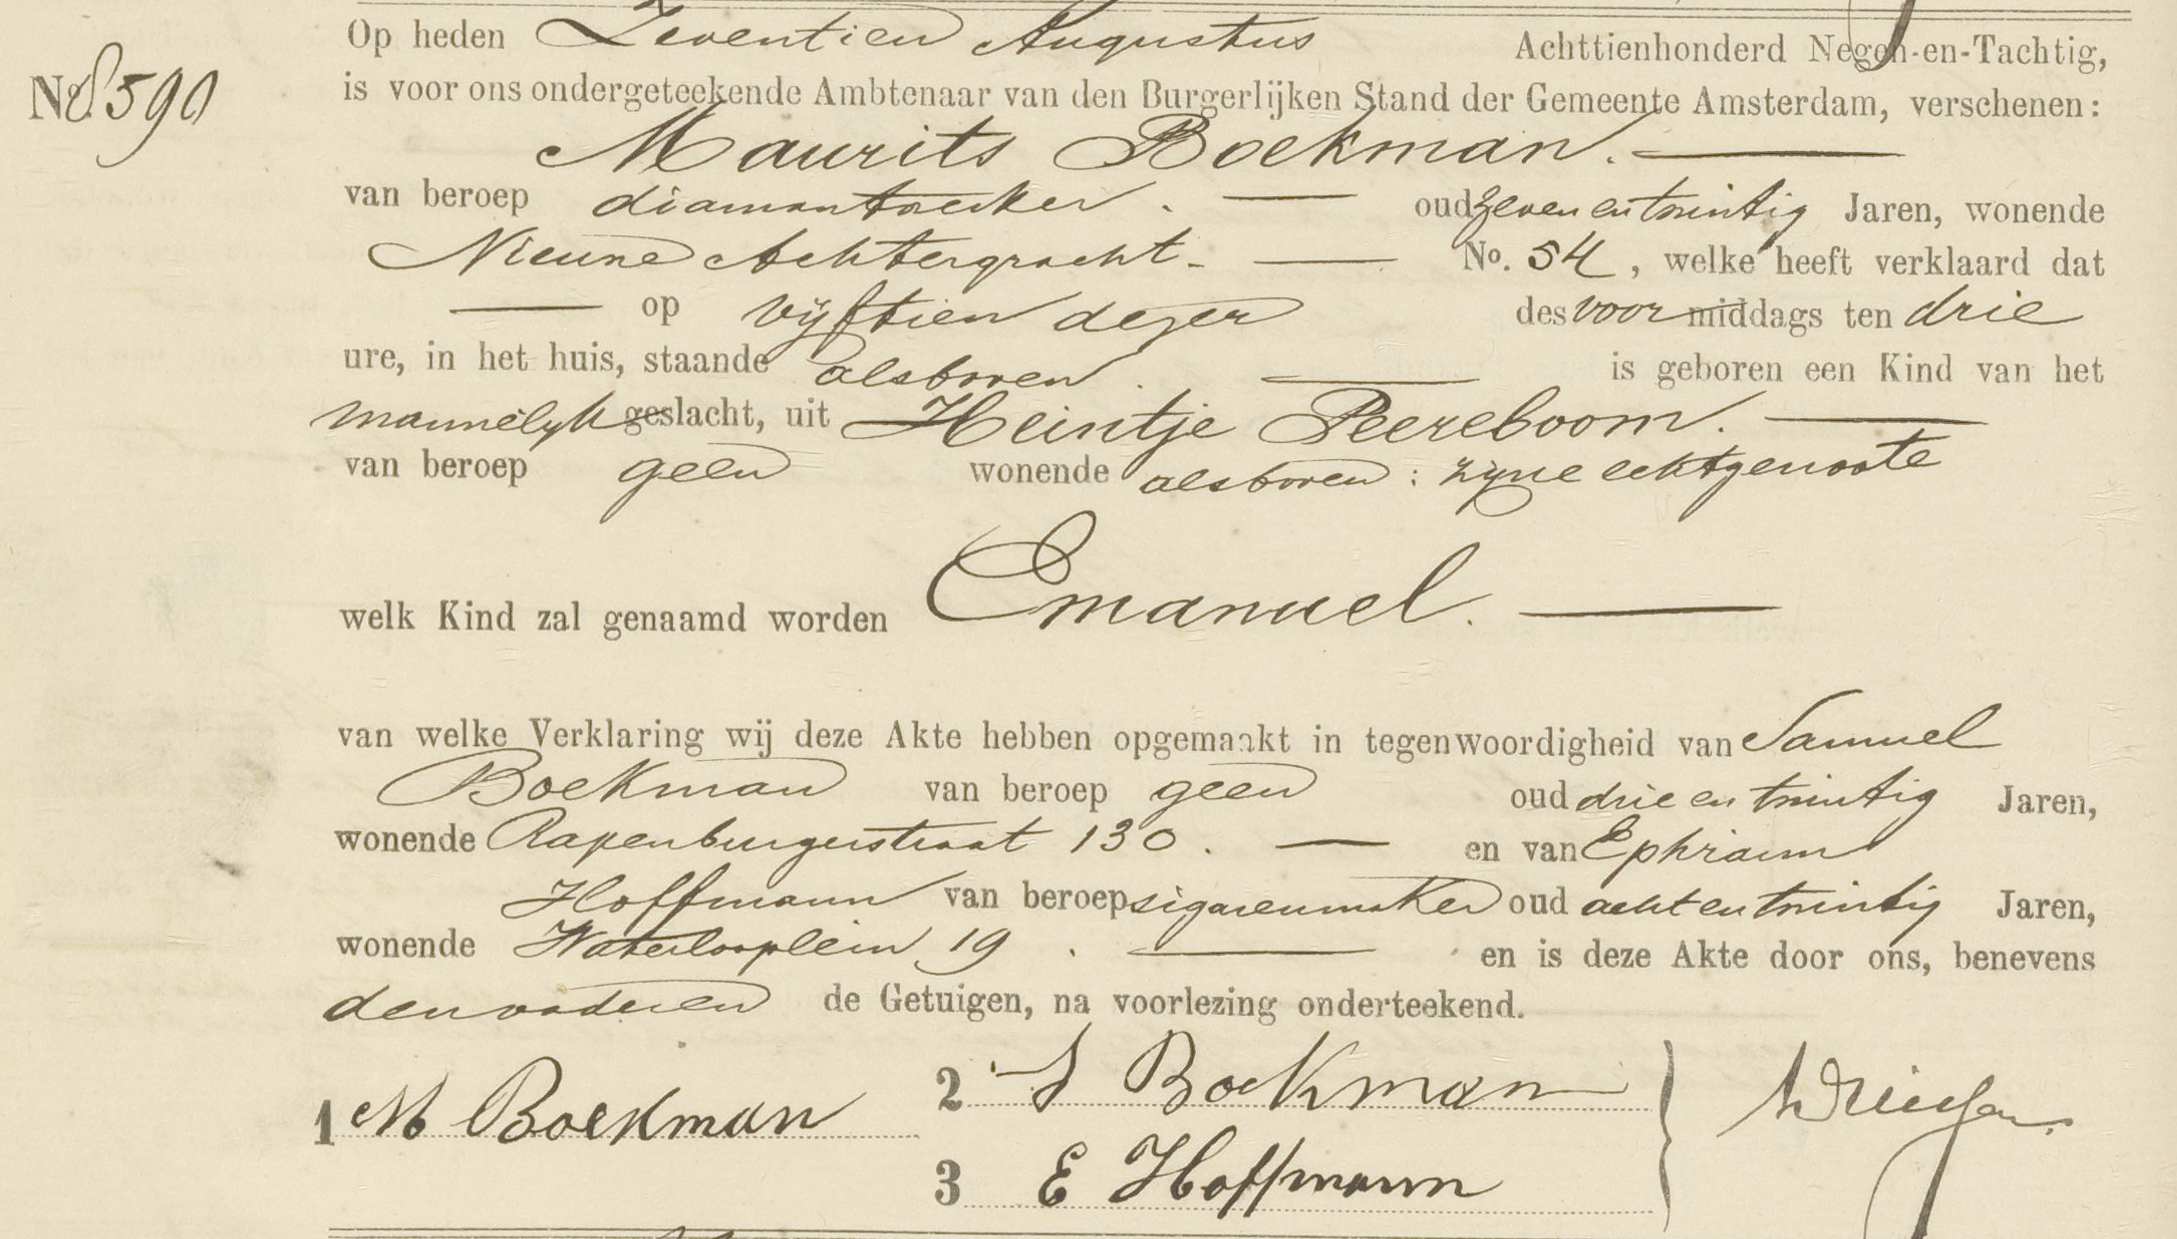 Op heden Zeventien Augustus Achttienhonderd Negen-en-Tachtig,
No 8590
is voor ons ondergeteekende Ambtenaar van den Burgerlijken Stand der Gemeente Amsterdam, verschenen:
Maurits Boekman.
van beroep diamantwerker. oud zeven en twintig Jaren, wonende
Nieuwe Achtergracht No. 54, welke heeft verklaard dat
op vijftien dezer des voor middags ten drie
ure, in het huis, staande alsboven. is geboren een Kind van het
mannelijk geslacht, uit Heintje Peereboom.
van beroep geen wonende alsboven: zijne echtgenoote
welk Kind zal genaamd worden Emanuel.
van welke Verklaring wij deze Akte hebben opgemaakt in tegenwoordigheid van Samuel
Boekman van beroep geen oud drie en twintig Jaren,
wonende Rapenburgerstraat 130. en van Ephraim
Hoffmann van beroep sigarenmaker oud acht en twintig Jaren,
wonende Waterlooplein 19. en is deze Akte door ons, benevens
den vader en de Getuigen, na voorlezing onderteekend.
1 M Boekman
2 S Boekman
3 E Hoffmann